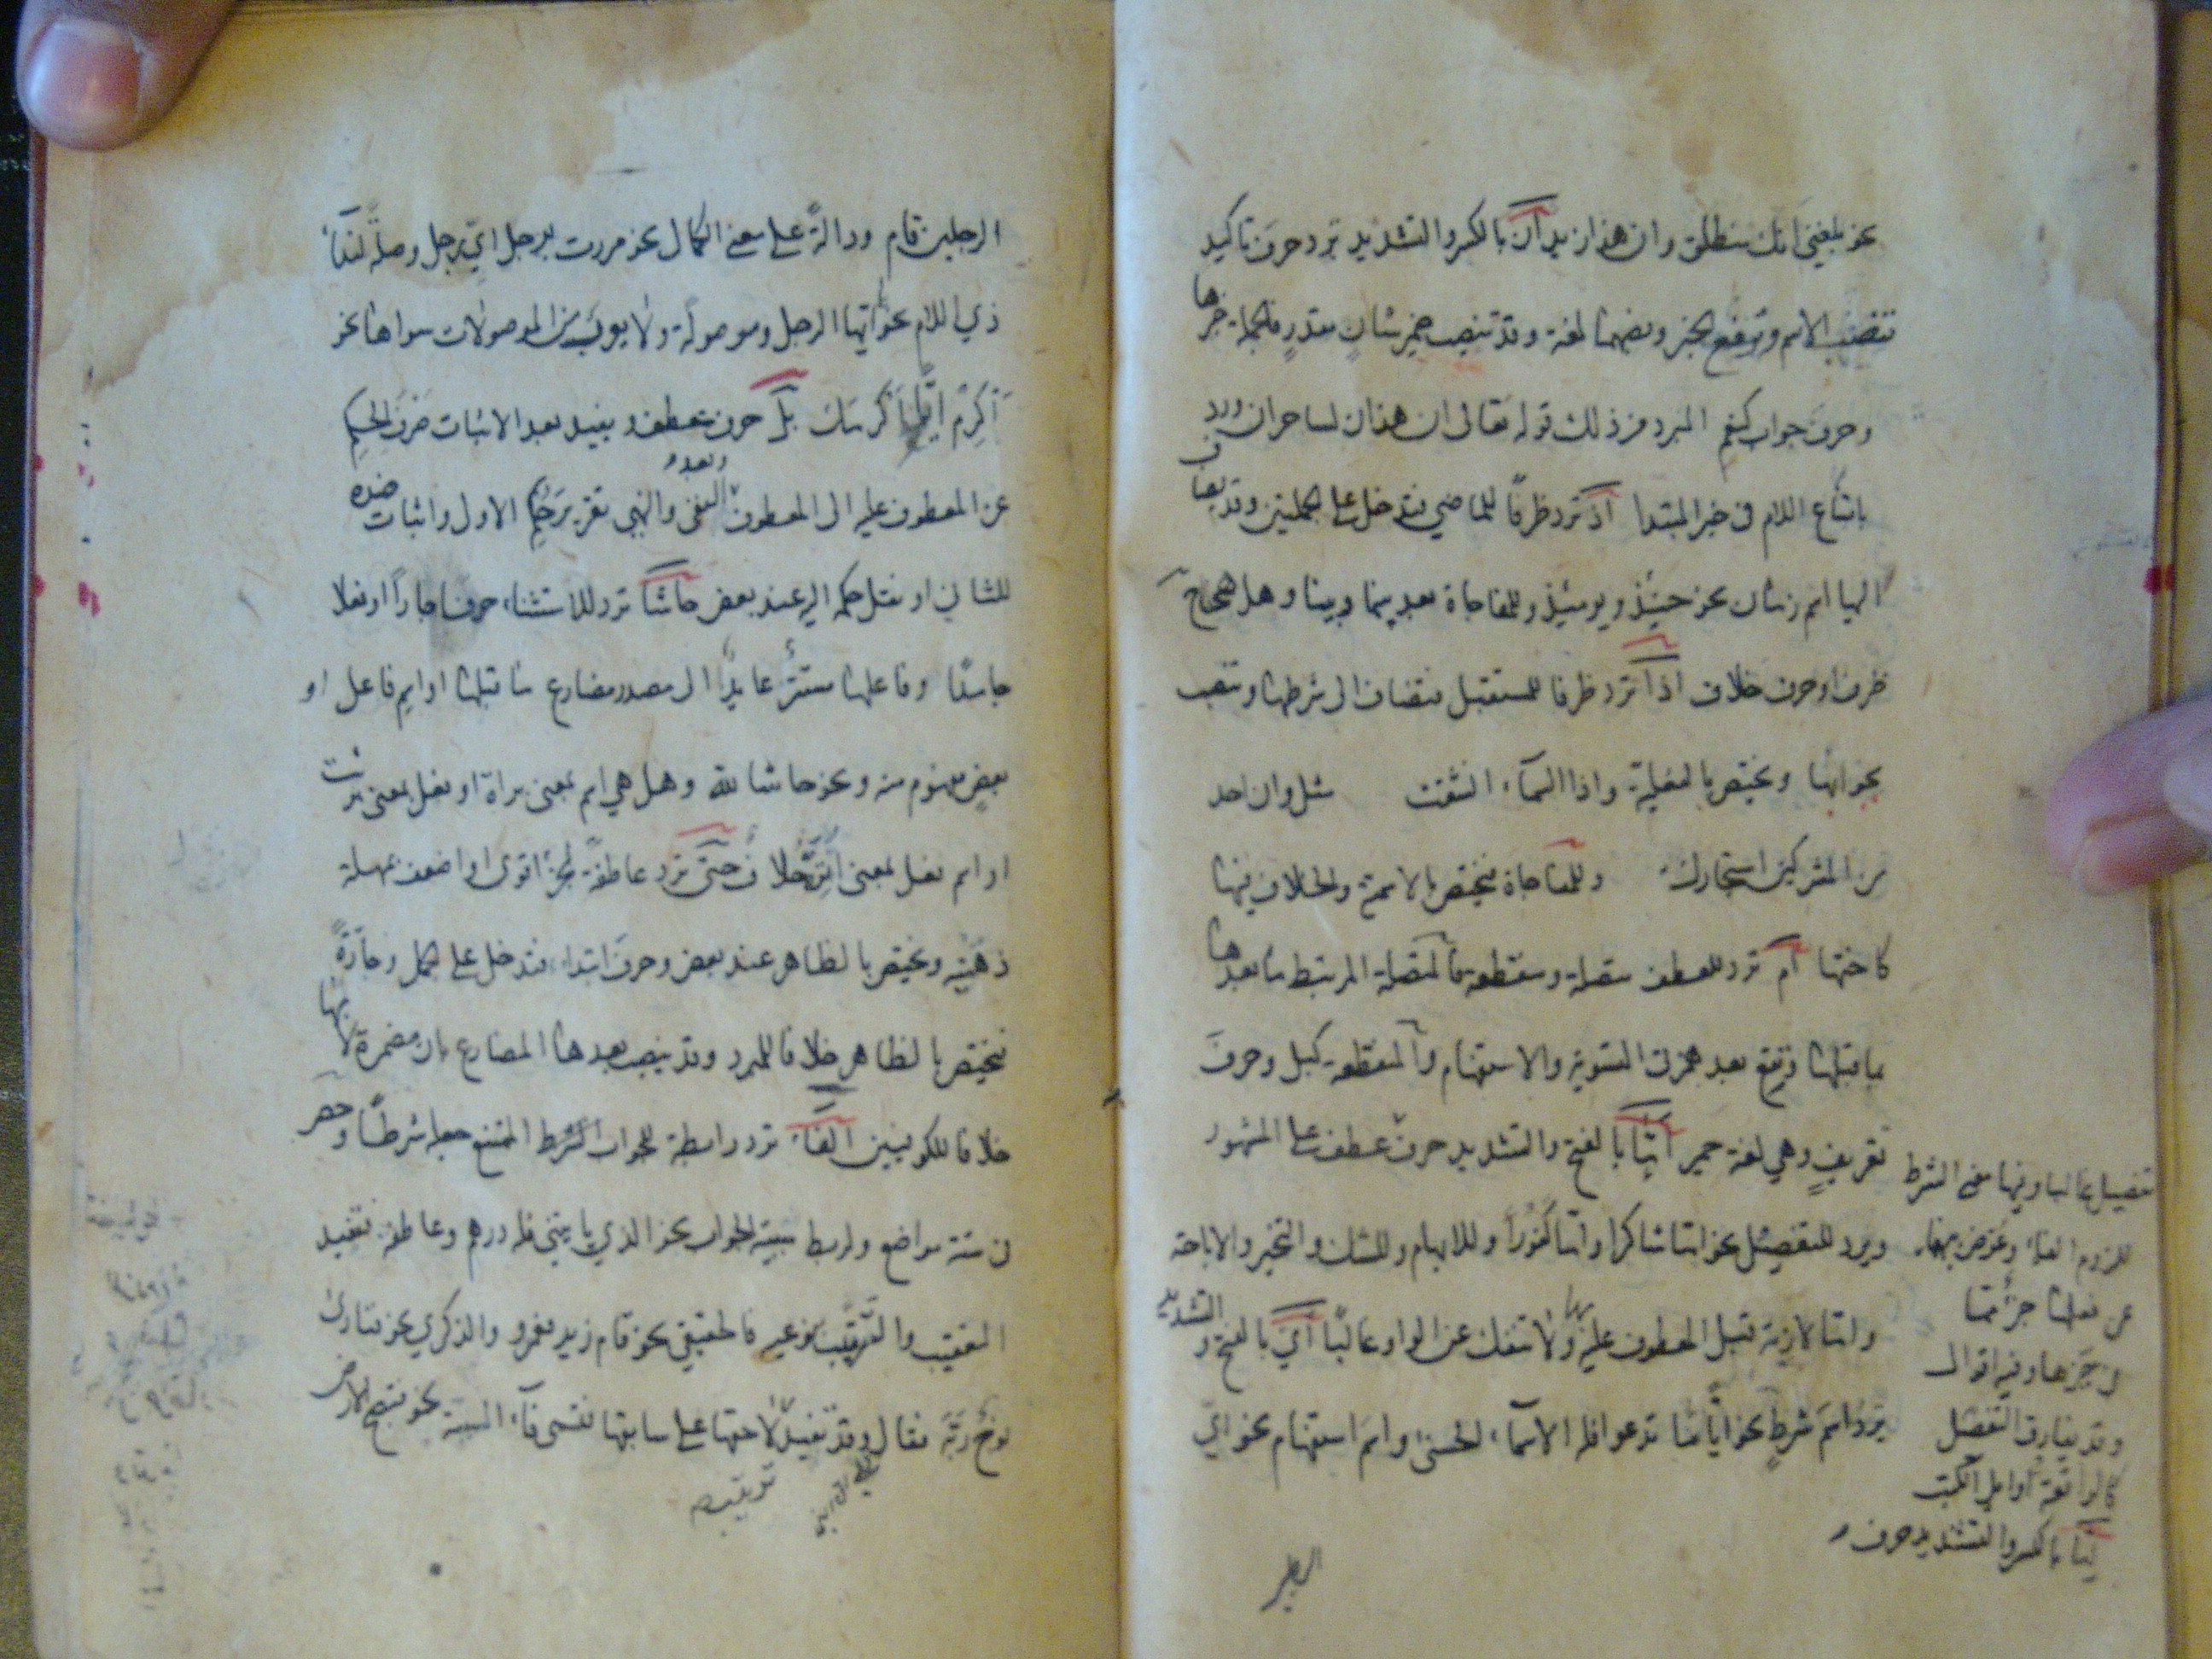 نحو بلغني انك منطلق وان هذا زيد ان بالكسر والتشديد ترد حرف تاكيد
تنصب الاسم وترفع الخبر ونصبهما لغة وقد تنصب ضمير شان مقدر فالجملة خبرها
وحرف جواب كنعم المبرد من ذلك قوله تعالى ان هذان لساحران ورد
بامتناع اللام في خبر المبتدا اذ ترد ظرفا للماضي فتدخل على الجملتين وقد يضاف
اليها اسم زمان نحو حينئذ ويومئذ وللمفاجاة بعد بينما وبينا وهل هي ح
ظرف او حرف خلاف اذا ترد ظرفا للمستقبل فتضاف الى شرطها وتنصب
بجوابها وتختص بالفعلية واذا السماء انشقت مثل وان احد
من المشركين استجارك وللمفاجاة فتختص بالاسمية والخلاف فيها
كاختها ام ترد للعطف متصلة ومنقطعة فالمتصلة المرتبط ما بعدها
بما قبلها وتقع بعد همزة التسوية والاستفهام والمنقطعة كبل وحرف
تعريف وهي لغة حمير اما بالفتح والتشديد حرف عطف على المشهور
ويرد للتفصيل نحو اما شاكرا واما كفورا وللابهام وللشك والتخيير والاباحة
واما لازمة قبل المعطوف عليه بها ولا تنفك عن الواو غالبا اي بالفتح والتشديد
ترد اسم شرط نحو ايا ما تدعوا فله الاسماء الحسنى واسم استفهام نحو اي
تفصيل غالبا وفيها معنى الشرط
للزوم الفاء وعوض بينهما
عن فعلها جزء مما
في حيزها وفيه اقوال
وقد يفارق التفصيل
كالواقعة اوايل الكتب
اما بالكسر والتشديد حرف
الرجلين
الرجلين قام ودالة على معنى الكمال نحو مررت برجل اي رجل وصلة لنداء
ذي اللام نحو يا ايها الرجل وموصولة ولا يعرب من الموصولات سواها نحو
اكرم ايا اكرمك بل حرف عطف ويفيد بعد الاثبات صرف الحكم
عن المعطوف عليه الى المعطوف وبعد النفي والنهي تقرير حكم الاول واثبات ضده
للثاني او نقل حكمه اليه عند بعض حاشا ترد للاستثناء حرفا جارا او فعلا
جامدا وفاعلها مستتر عايد الى مصدر مضارع ما قبلها او اسم فاعل او
بعض مفهوم منه ونحو حاشا لله وهل هي اسم بمعنى براءة او فعل بمعنى برئت
او اسم فعل بمعنى اتبرء خلاف حتى ترد عاطفة لجزء اقوى او اضعف بمهلة
ذهنية وتختص بالظاهر عند بعض وحرف ابتداء فتدخل على الجمل وجارة
فتختص بالظاهر خلافا للمبرد وقد ينصب بعدها المضارع بان مضمرة لا بها
خلافا للكوفيين الفاء ترد رابطة للجواب الشرط الممتنع جعله شرطا وحصر
في ستة مواضع ولربط شبيه الجواب نحو الذي ياتيني فله درهم وعاطفة فتفيد
التعقيب والترتيب بنوعيه فالحقيقي نحو قام زيد فعمرو والذكري نحو ونادى
نوح ربه فقال وقد تفيد لاحقها على سابقها فتسمى فاء السببية نحو فتصبح الارض